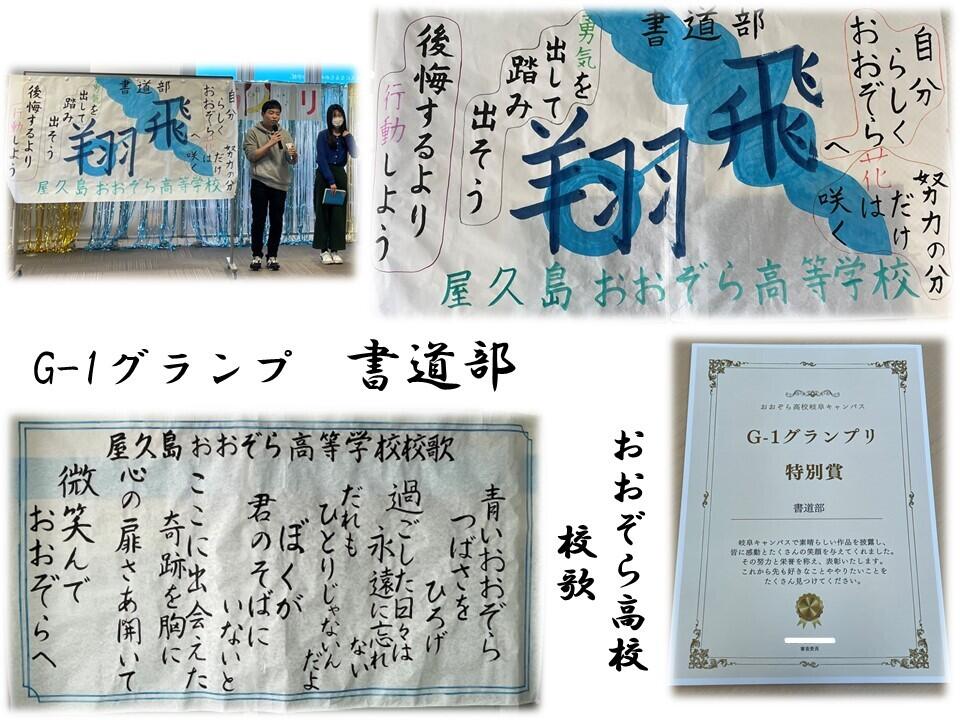 書道部
自分
らしく
おおぞらへ
努力の分
だけ
花は
咲く
飛翔
勇気を
出して
踏み
出そう
後悔するより
行動しよう
屋久島おおぞら高等学校
書道部
自分
らしく
おおぞらへ
努力の分
だけ
花は
咲く
飛翔
勇気を
出して
踏み
出そう
後悔するより
行動しよう
屋久島おおぞら高等学校
G-1グランプ 書道部
屋久島おおぞら高等学校校歌
青いおおぞら
つばさを
ひろげ
過ごした日々は
永遠に忘れ
ない
だれも
ひとりじゃないん
だよ
ぼくが
君のそばに
いないと
ここに出会えた
奇跡を胸に
心の扉さあ開いて
微笑んで
おおぞらへ
おおぞら高校
校歌
おおぞら高校岐阜キャンパス
G-1グランプリ
特別賞
書道部
岐阜キャンパスで素晴らしい作品を披露し、
皆に感動とたくさんの笑顔を与えてくれました。
その努力と栄誉を称え、表彰いたします。
これから先も好きなことややりたいことを
たくさん見つけてください。
審査委員